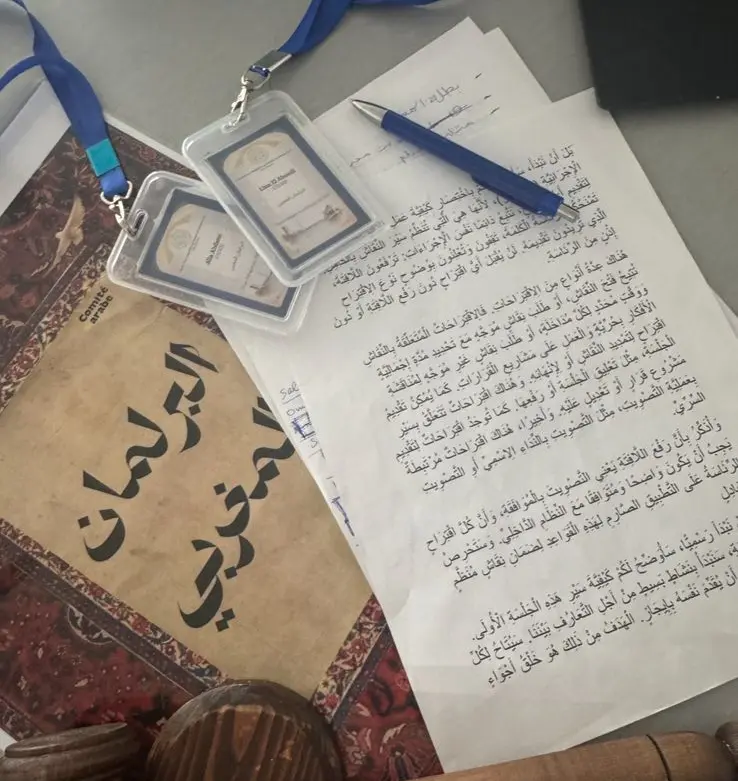 Comité
arabe
البرلمان
المغربي
Alaa El Ahmadi
بَلْ أَنْ نَبْدَأَ،
بِاخْتِصَارٍ كَيْفِيَّةَ عَمَلِ
لِأَنَّهَا هِيَ الَّتِي تُنَظِّمُ سَيْرَ النِّقَاشِ
الْكَلِمَةَ، تَتَّبِعُ دَائِمًا نَفْسَ الْإِجْرَاءَاتِ: تَرْفَعُونَ اللَّافِتَةَ،
تَقِفُونَ وَتُعْلِنُونَ بِوُضُوحٍ نَوْعَ الِاقْتِرَاحِ
الَّذِي تُرِيدُونَ تَقْدِيمَهُ. لَنْ يُقْبَلَ أَيُّ اقْتِرَاحٍ دُونَ رَفْعِ اللَّافِتَةِ أَوْ دُونَ
إِذْنٍ مِنَ الرِّئَاسَةِ
هُنَاكَ عِدَّةُ أَنْوَاعٍ مِنَ الِاقْتِرَاحَاتِ. فَالِاقْتِرَاحَاتُ الْمُتَعَلِّقَةُ بِالنِّقَاشِ
تُتِيحُ فَتْحَ النِّقَاشِ، أَوْ طَلَبَ نِقَاشٍ مُوَجَّهٍ مَعَ تَحْدِيدِ مُدَّةٍ إِجْمَالِيَّةٍ
وَوَقْتٍ مُحَدَّدٍ لِكُلِّ مُدَاخَلَةٍ، أَوْ طَلَبَ نِقَاشٍ غَيْرِ مُوَجَّهٍ لِمُنَاقَشَةِ
الْأَفْكَارِ بِحُرِّيَّةٍ وَالْعَمَلِ عَلَى مَشَارِيعِ الْقَرَارَاتِ. كَمَا يُمْكِنُ تَقْدِيمُ
اقْتِرَاحٍ لِتَمْدِيدِ النِّقَاشِ أَوْ لِإِنْهَائِهِ. وَهُنَاكَ اقْتِرَاحَاتٌ تَتَعَلَّقُ بِسَيْرِ
الْجَلْسَةِ، مِثْلَ تَعْلِيقِ الْجَلْسَةِ أَوْ رَفْعِهَا. كَمَا تُوجَدُ اقْتِرَاحَاتٌ لِتَقْدِيمِ
مَشْرُوعِ قَرَارٍ أَوْ تَعْدِيلٍ عَلَيْهِ. وَأَخِيرًا، هُنَاكَ اقْتِرَاحَاتٌ مُرْتَبِطَةٌ
بِعَمَلِيَّةِ التَّصْوِيتِ، مِثْلَ التَّصْوِيتِ بِالنِّدَاءِ الِاسْمِيِّ أَوِ التَّصْوِيتِ
السِّرِّيِّ.
وَأُذَكِّرُ بِأَنَّ رَفْعَ اللَّافِتَةِ يَعْنِي التَّصْوِيتَ بِالْمُوَافَقَةِ، وَأَنَّ كُلَّ اقْتِرَاحٍ
يَجِبُ أَنْ يَكُونَ وَاضِحًا وَمُتَوَافِقًا مَعَ النِّظَامِ الدَّاخِلِيِّ. وَسَتَحْرِصُ
الرِّئَاسَةُ عَلَى التَّطْبِيقِ الصَّارِمِ لِهَذِهِ الْقَوَاعِدِ لِضَمَانِ نِقَاشٍ مُنَظَّمٍ
نَبْدَأَ رَسْمِيًّا، سَأُوَضِّحُ لَكُمْ كَيْفِيَّةَ سَيْرِ هَذِهِ الْجَلْسَةِ الْأُولَى.
سَنَبْدَأُ بِنَشَاطٍ بَسِيطٍ مِنْ أَجْلِ التَّعَارُفِ بَيْنَنَا. سَيُتَاحُ لِكُلِّ
أَنْ يُقَدِّمَ نَفْسَهُ بِإِيجَازٍ. الْهَدَفُ مِنْ ذَلِكَ هُوَ خَلْقُ أَجْوَاءٍ